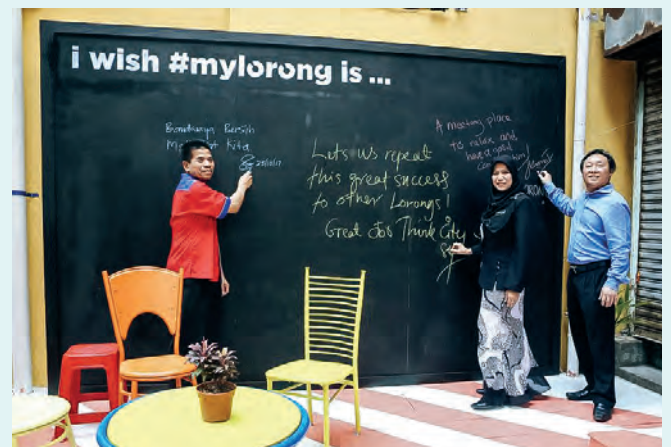 i wish #mylorong is ...
Bandaraya Bersih
Kita
Lets us repeat
this great success
to other Lorongs!
Great Job Think City
A meeting place
to relax and
have a good